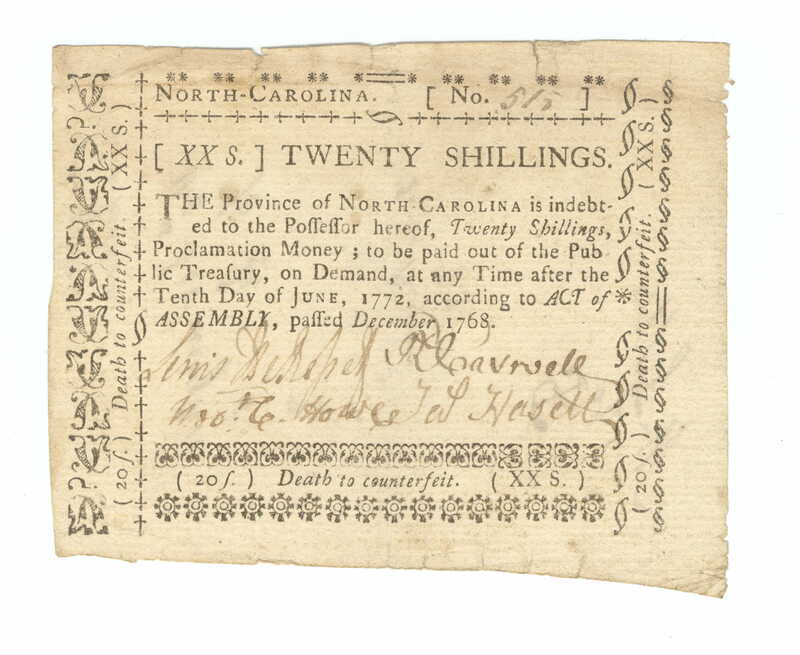 NORTH-CAROLINA. [ No. 515 ]
[ XX S. ] TWENTY SHILLINGS.
THE Province of NORTH-CAROLINA is indebt-
ed to the Poſſeſſor hereof, Twenty Shillings,
Proclamation Money ; to be paid out of the Pub
lic Treaſury, on Demand, at any Time after the
Tenth Day of JUNE, 1772, according to ACT of
ASSEMBLY, paſſed December 1768.
Lewis DeRosset R Caswell
Rob.t Howe Ja.s Hasell
( 20 ſ. ) Death to counterfeit. ( XX S. )
( 20 ſ. ) Death to counterfeit. ( XX S. )
( 20 ſ. ) Death to counterfeit. ( XX S. )